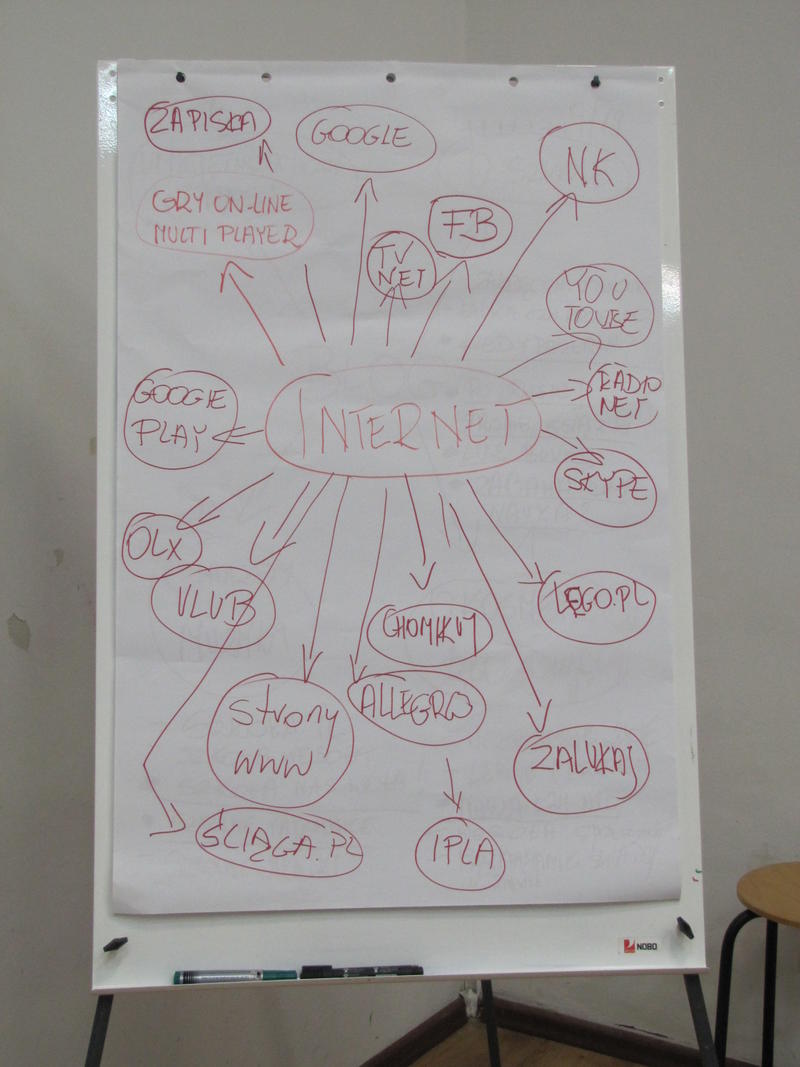 ZAPISKA
GOOGLE
NK
GRY ON-LINE
MULTI PLAYER
FB
TV
NET
YOU
TOUBE
GOOGLE
PLAY
INTERNET
RADIO
NET
SKYPE
OLX
VLUB
LEGO.PL
CHOMIKUJ
Strony
WWW
ALLEGRO
ZALUKAJ
ŚCIĄGA.PL
IPLA
NOBO